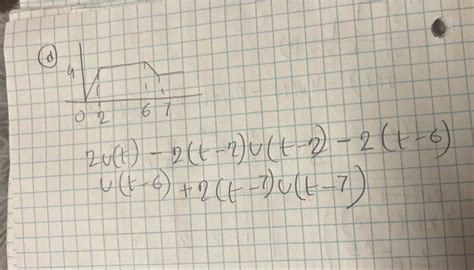 d
4
0 2 6 7
2u(t) - 2(t-2)u(t-2) - 2(t-6)
u(t-6) + 2(t-7)u(t-7)